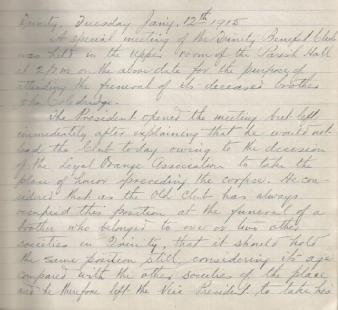 Trinity, Tuesday Jany. 12th 1915
A special meeting of the Trinity Benefit Club
was held in the Upper room of the Parish Hall
at 2 p.m. on the above date for the purpose of
attending the funeral of its deceased brother
John Coleridge.
The President opened the meeting but left
immediately after explaining that he would not
lead the Club today owing to the decision
of the Loyal Orange Association to take the
place of honor preceding the corpse. He con-
sidered that as the Old Club has always
occupied this position at the funeral of a
brother who belonged to one or two other
societies in Trinity, that it should hold
the same position still, considering its age
compared with the other societies of the place
and he therefore left the Vice President to take his